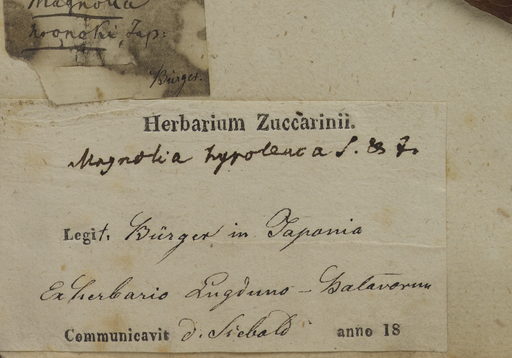 Magnolia
Jap:
Bürger.
Herbarium Zuccarinii.
Magnolia hypoleuca S. & Z.
Legit. Bürger in Japonia
Ex herbario Lugduno-Batavorum
Communicavit d. Siebold anno 18